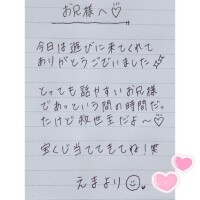 お兄様へ♡
今日は遊びに来てくれて
ありがとうございました☆
とっても話やすいお兄様
であっという間の時間だっ
たけど救世主だよ〜♡
宝くじ当ててきてね!笑
えまより☺